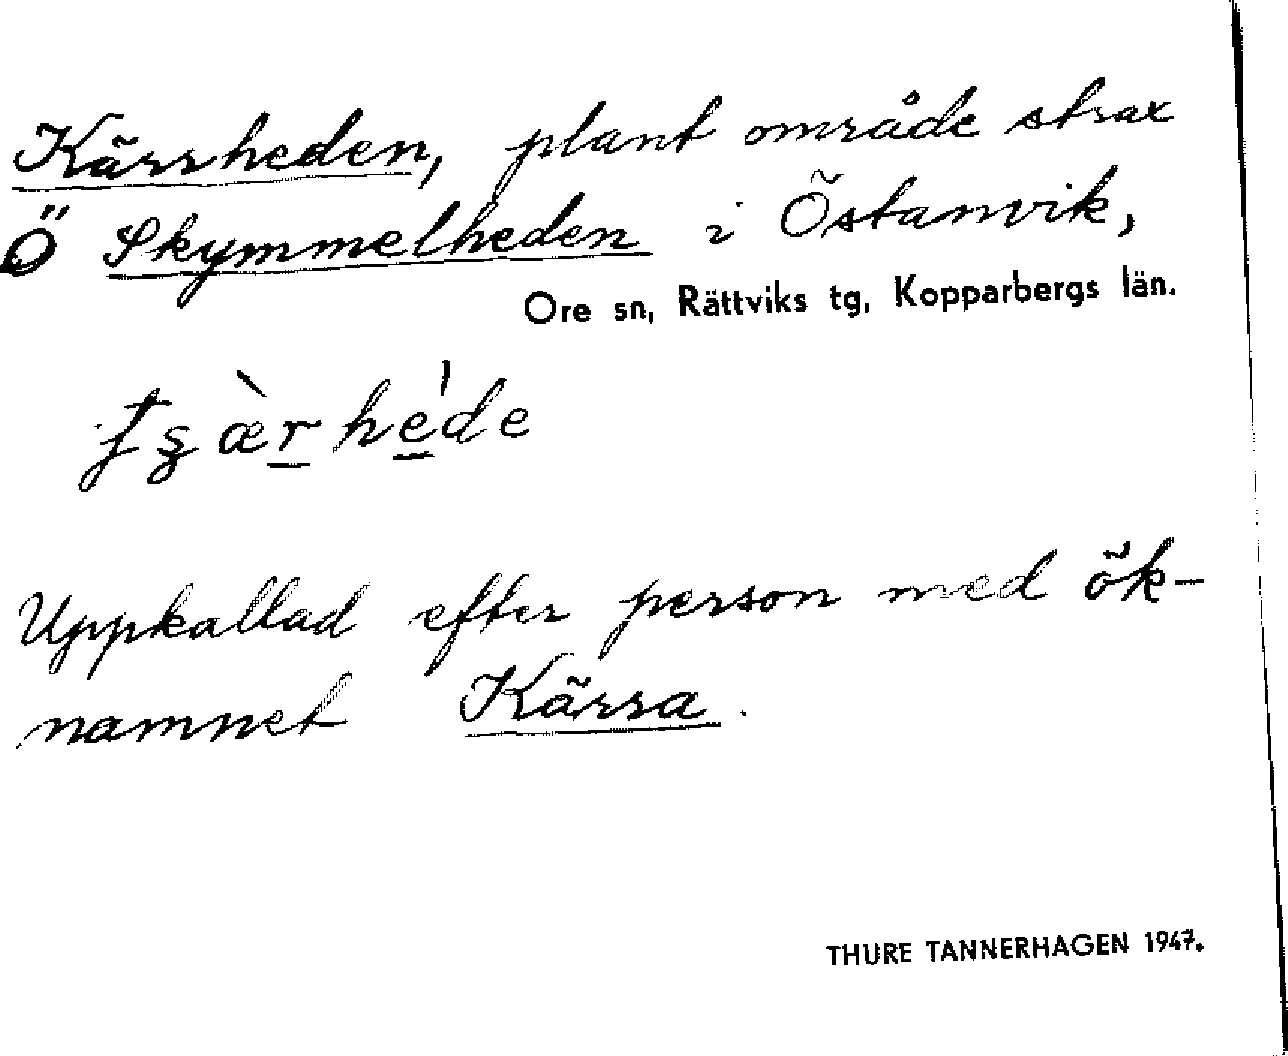 Kärrheden, plant område strax
Ö Skymmelheden i Östanvik,
Ore sn, Rättviks tg, Kopparbergs län.
Uppkallad efter person med ök-
namnet Kärra.
THURE TANNERHAGEN 1947.